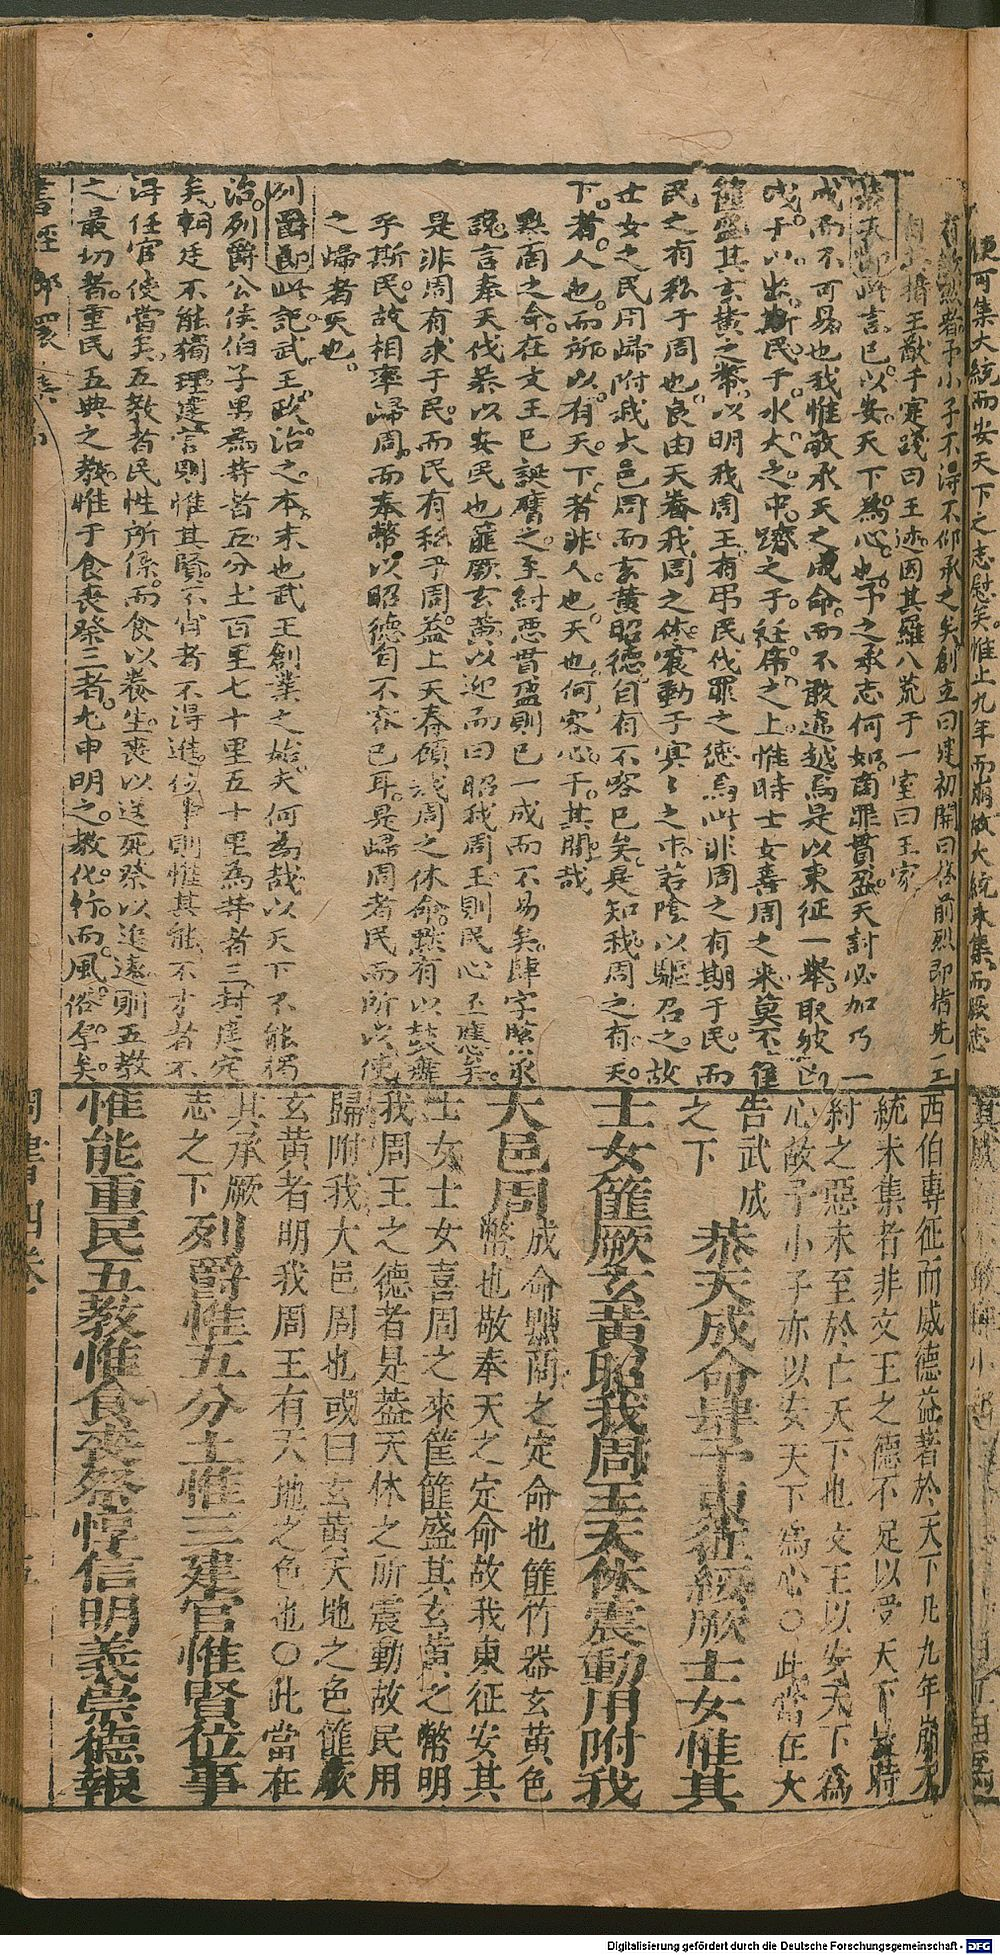 有歉然者予小子不得不仰承之矣創立曰建初開曰啓前烈即指先王
王猷千定踐曰王迹因其羅八荒于一室曰王家
恭天節此言已以安天下為心也予之承志何如商罪貫盈天討必加乃一
成而不可易也我惟敬承天之成命而不敢違越焉是以東征一舉取彼凶
戊于以出斯民于水火之中躋之于衽席之上惟時士女喜周之來莫不篚
篚盛其玄黃之幣以明我周王有吊民伐罪之德焉此非周之有期于民而
民之有私于周也良由天眷我周之休震動于冥々之中若陰以驅召之故
士女之民用歸附我大邑周而玄黃昭德自有不容已矣是知我周之有天
下者人也而所以有天下者非人也天也何容心于其間哉
商之命在文王已誕膺之至紂惡貫盈則已一成而不易矣肆字緊承
說言奉天伐暴以安民也篚厥玄黃以迎而曰昭我周王則民心丕應矣
是非周有求于民而民有私于周益上天眷顧我周之休命默有以鼓舞
乎斯民故相率歸周而奉幣以昭德自不容已耳是歸周者民而所以使
之歸者天也
列爵節此記武王政治之本末也武王創業之始夫何為哉以天下不能獨
治列爵公侯伯子男為等者五分土百里七十里五十里為等者三封建定
矣朝廷不能獨理建官則惟其賢不肖者不得進位事則惟其能不才者不
得任官使當矣五教者民性所係而食以養生喪以送死祭以追遠則五教
之最切者重民五典之教惟于食喪祭三者九申明之教化行而風俗厚矣
西伯專征而威德益著於天下凡九年崩大
統未集者非文王之德不足以受天下是時
紂之惡未至於亡天下也文王以安天下為
心故予小子亦以安天下為心〇此當在大
告武成
之下 恭天成命肆予東征綏厥士女惟其
士女篚厥玄黃昭我周王天休震動用附我
大邑周 成命黜商之定命也篚竹器玄黃色
幣也敬奉天之定命故我東征安其
士女士女喜周之來筐篚盛其玄黃之幣明
我周王之德者是蓋天休之所震動故民用
歸附我大邑周也或曰玄黃天地之色篚厥
玄黃者明我周王有天地之色也〇此當在
其承厥
志之下 列爵惟五分土惟三建官惟賢位事
惟能重民五教惟食喪祭惇信明義崇德報
Digitalisierung gefördert durch die Deutsche Forschungsgemeinschaft - DFG